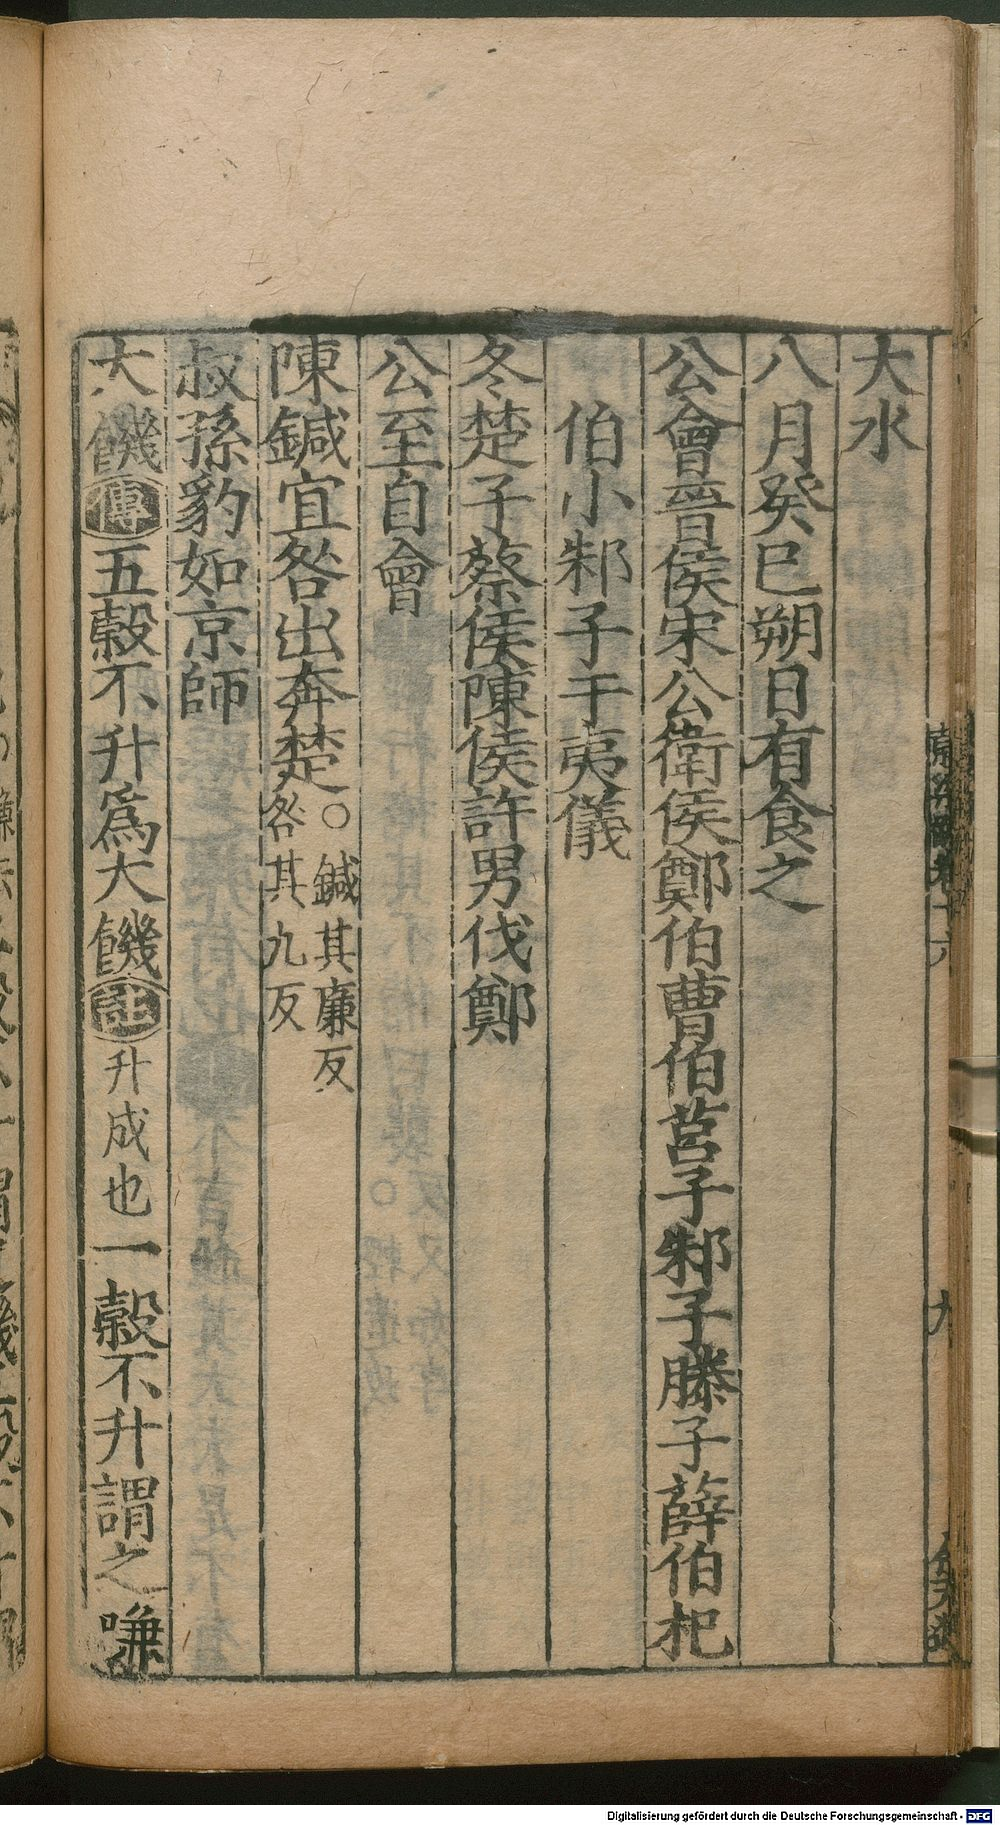 大水
八月癸巳朔日有食之
公會晉侯宋公衛侯鄭伯曹伯莒子邾子滕子薛伯杞
伯小邾子于夷儀
冬楚子蔡侯陳侯許男伐鄭
公至自會
陳鍼宜咎出奔楚○鍼其廉反
咎其九反
叔孫豹如京師
大饑傳五穀不升爲大饑註升成也一穀不升謂之嗛
Digitalisierung gefördert durch die Deutsche Forschungsgemeinschaft - DFG